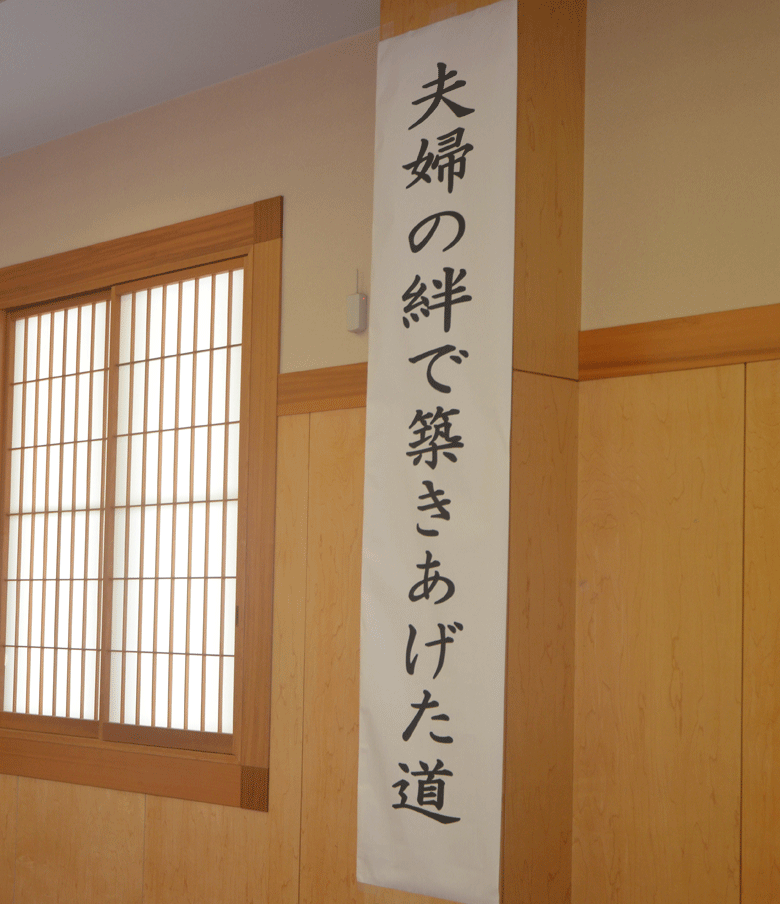 夫婦の絆で築きあげた道